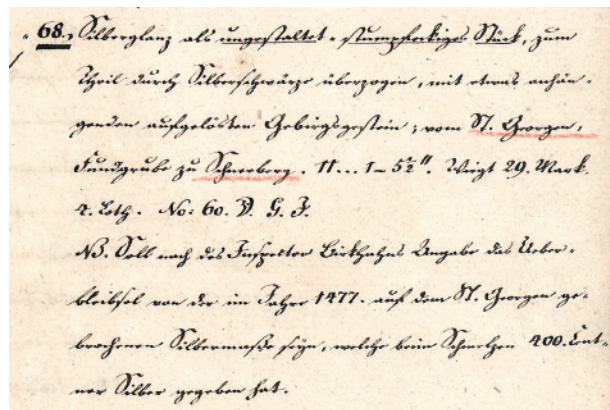 68., Silberglanz als ungestaltet-stumpfeckiges Stück, zum
Theil durch Silberschwärze überzogen, mit etwas anhän-
genden aufgelösten Gebirgsgestein; vom St. Georgen,
Fundgrube zu Schneeberg. 11... 1-5½". Wiegt 29. Mark.
4. Loth. No: 60. D. G. F.
NB. Soll nach des Inspector Birkhahns Angabe das Ueber-
bleibsel von der im Jahre 1477. auf dem St. Georgen ge-
brochenen Silbermaße seyn, welche beim Schmelzen 400. Cent-
ner Silber gegeben hat.